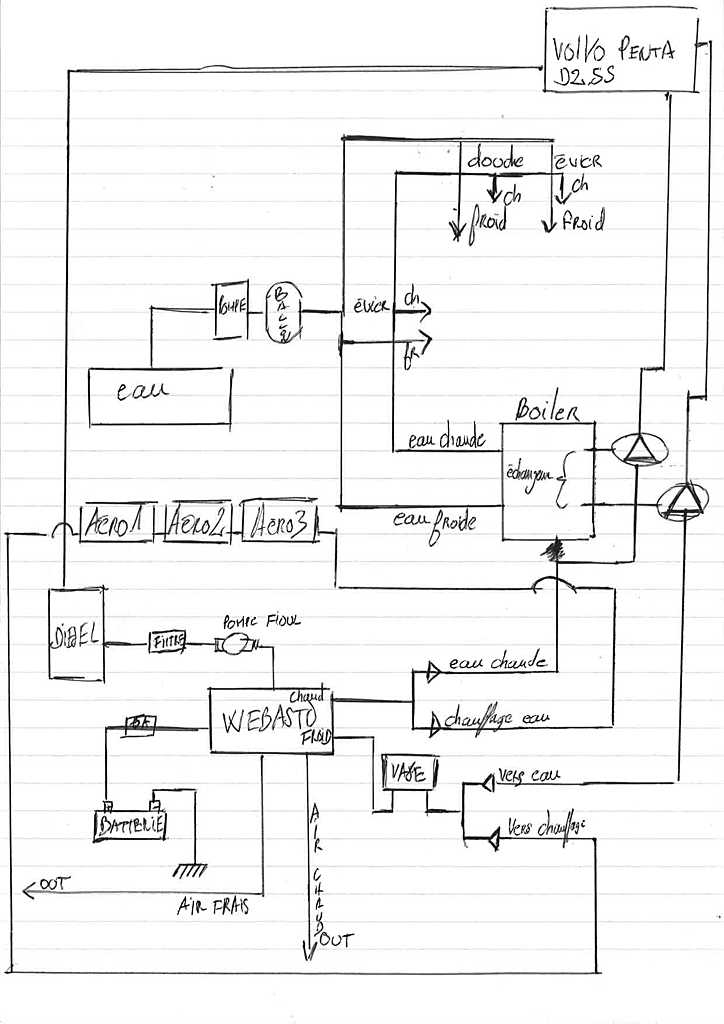 VOLVO PENTA
D2.55
douche
ÉVIER
ch
ch
froid
FROID
POMPE
BALLO
ÉVIER
ch
fR
eau
Boiler
eau chaude
échangeur
eau froide
AERO1
AERO2
AERO3
DIESEL
FILTRE
POMPE FIOUL
eau chaude
Chaud
WEBASTO
FROID
chauffage eau
VASE
Vers eau
BATTERIE
Vers chauffage
OUT
AIR FRAIS
AIR CHAUD
OUT